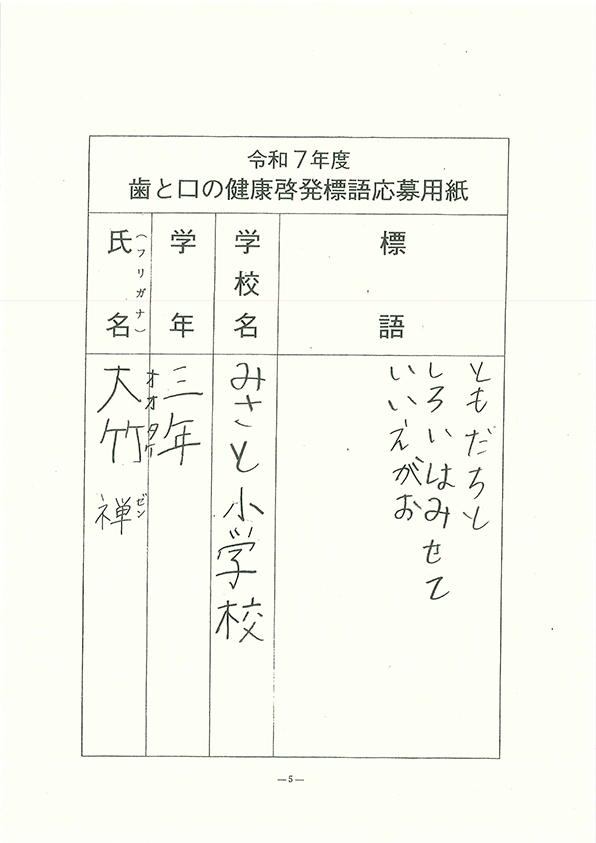 令和７年度
歯と口の健康啓発標語応募用紙
標語
ともだちと
しろいはみせて
いいえがお
学校名
みさと小学校
学年
三年
氏名
（フリガナ）
大竹 禅
オオタケ ゼン
—5—